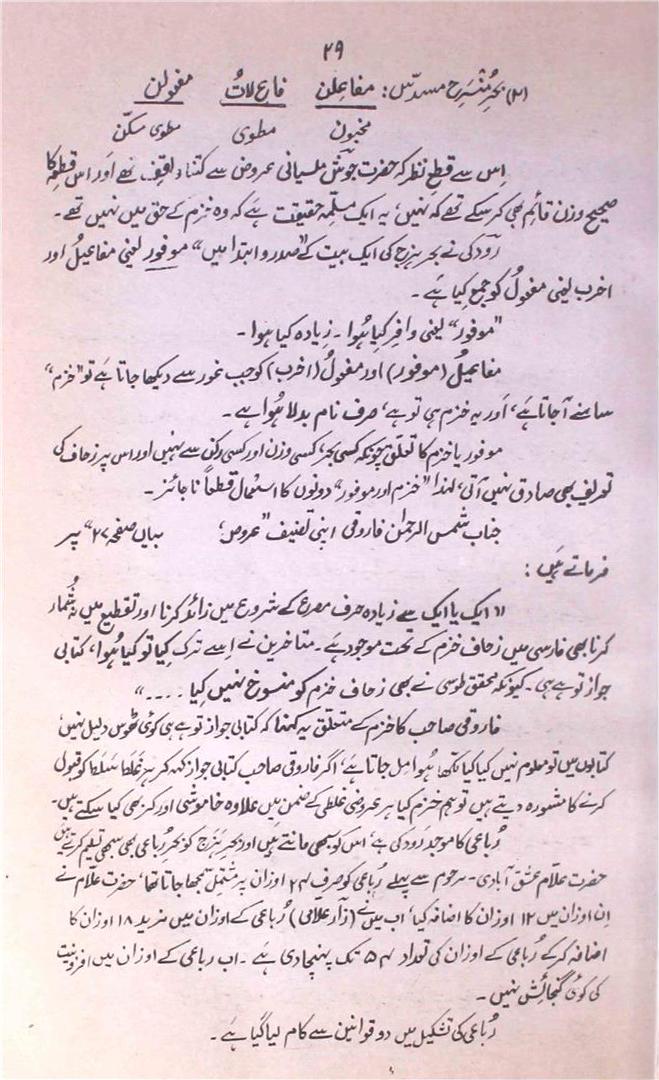 ۲۹
(۲) بحرِ مُنسَرِح مسدّس: مفاعلن فاع لاتُ مفعولن
مخبون مطوی مطوی مسکّن
اِس سے قطع نظر کہ حضرت جوشؔ ملسیانی عروض سے کتنا واقِف تھے اَور اس قطعہ کا
صحیح وزن قائم بھی کر سکے تھے کہ نہیں، یہ ایک مسلّمہ حقیقت ہے کہ وہ خزم کے حق میں نہیں تھے۔
رَودکی نے بحر ہزج کی ایک بیت کے "صدر و ابتدا میں" موفور لینی مفاعیلُ اور
اخرب لینی مفعولُ کو جمع کیا ہے۔
"موفور" لینی وافر کیا ہُوا۔ زیادہ کیا ہوا۔
مفاعیلُ (موفور) اور مفعولُ (اخرب) کو جب غور سے دیکھا جاتا ہے تو "خزم"
سامنے آ جاتا ہے، اَور یہ خزم ہی تو ہے، صرف نام بدلا ہُوا ہے۔
موفور یا خزم کا تعلق چونکہ کسی بحر، کسی وزن اور کسی رکن سے نہیں اور اس پر زحاف کی
تعریف بھی صادق نہیں آتی، لہٰذا "خزم اور موفور" دونوں کا استعمال قطعاً ناجائز۔
جناب شمس الرحمٰن فاروقی اپنی تصنیف "عروض، بیاں صفحہ ۲۷" پر
فرماتے ہَیں:
"ایک یا ایک سے زیادہ حرف مصرع کے شروع میں زائد کرنا اور تقطیع میں نہ شُمار
کرنا بھی فارسی میں زحاف خزم کے تحت موجود ہے۔ متاخرین نے اِسے ترک کِیا تو کیا ہُوا، کتابی
جواز تو ہے ہی۔ کیونکہ محقق طوسی نے بھی زحاف خزم کو منسوخ نہیں کِیا ...."
فاروقی صاحب کا خزم کے متعلق یہ کہنا کہ کتابی جواز تو ہے ہی کوئی ٹھوس دلیل نہیں
کتابوں میں تو معلوم نہیں کیا کیا لکھا ہُوا مل جاتا ہے، اگر فاروقی صاحب کتابی جواز کہہ کر ہر غَلَطا سَلَطا کو قبول
کرنے کا مشورہ دیتے ہیں تو ہم خزم کیا ہر عروضی غلطی کے ضمن میں علاوہ خاموشی اور کر بھی کیا سکتے ہیں۔
رُباعی کا موجد رَودکی ہے، اس کو سبھی مانتے ہیں اور بحر ہَزج کو بحرِ رُباعی بھی سبھی تسلیم کرتے ہیں
حضرت علّام عشق آبادی۔ مرحوم سے پہلے رُباعی کو صرف ۲۴ اوزان پر مشتمل سمجھا جاتا تھا، حضرت علّام نے
اِن اوزان میں ۱۲ اوزان کا اضافہ کیا، اب میں نے (زآر علّامی) رُباعی کے اوزان میں مزید ۱۸ اوزان کا
اضافہ کر کے رُباعی کے اوزان کی تعداد ۵۴ تک پہنچا دی ہے۔ اب رباعی کے اوزان میں افزونیت
کی کوئی گنجائش نہیں۔
رُباعی کی تشکیل میں دو قوانین سے کام لیا گیا ہے۔